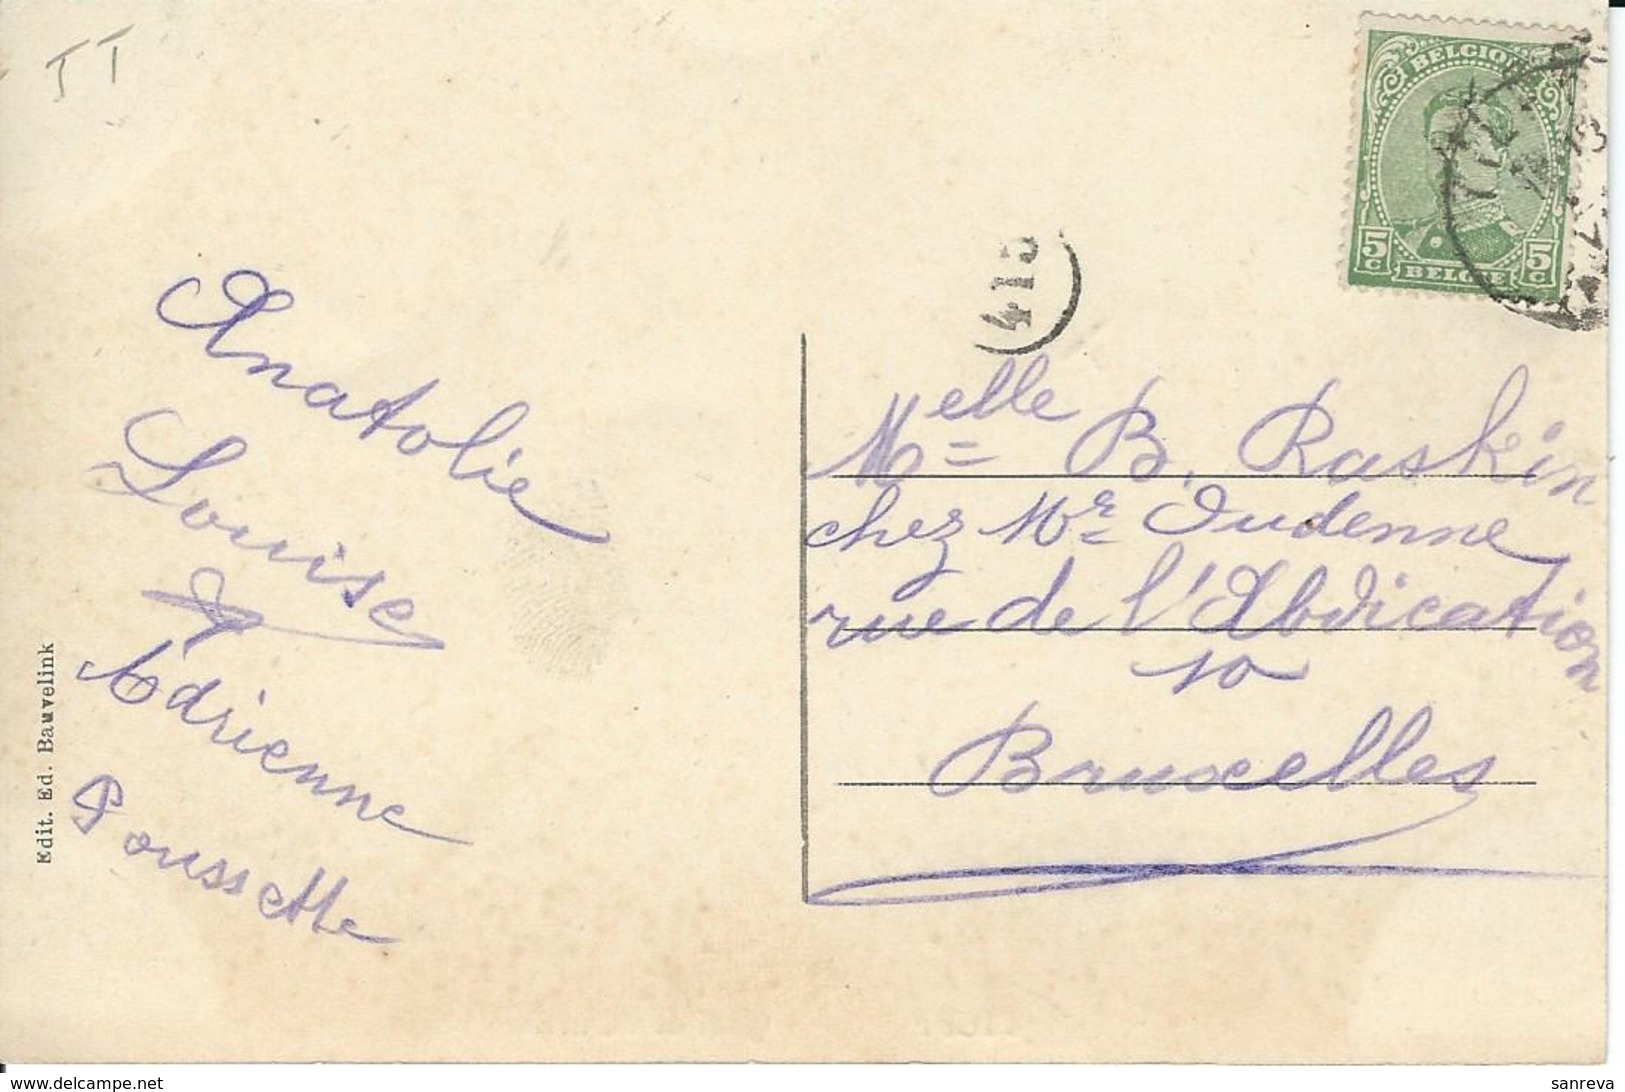 TT
BELGIQUE
5c
5c
BELGIË
415
Anatolie
Louise
&
Adrienne
Poussette
Edit. Ed. Bauvelink
Melle B. Raskin
chez Mr Oudenne
rue de l'Abdication
10
Bruxelles
www.delcampe.net
sanreva